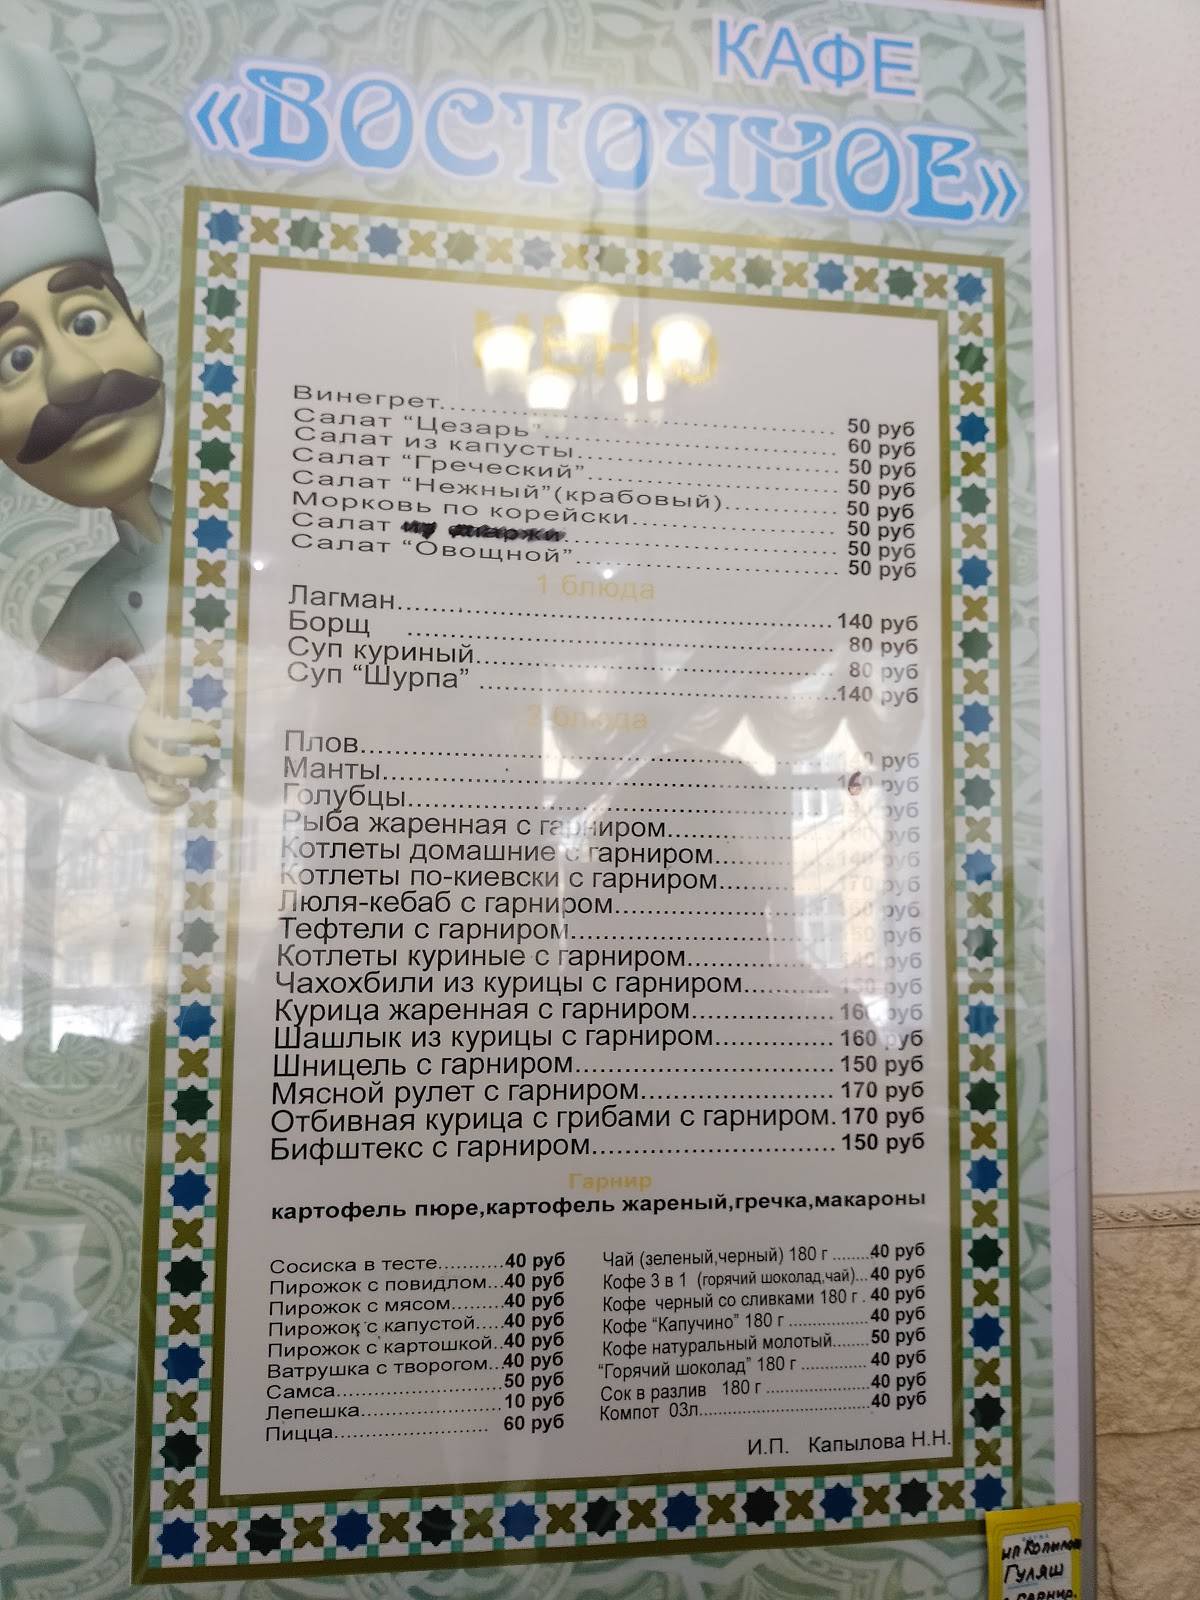 КАФЕ
«ВОСТОЧНОЕ»
МЕНЮ
Винегрет.......... 50 руб
Салат “Цезарь”.......... 60 руб
Салат из капусты.......... 50 руб
Салат “Греческий”.......... 50 руб
Салат “Нежный”(крабовый).......... 50 руб
Морковь по корейски.......... 50 руб
Салат .......... 50 руб
Салат “Овощной”.......... 50 руб
1 блюда
Лагман.......... 140 руб
Борщ .......... 80 руб
Суп куриный.......... 80 руб
Суп “Шурпа” .......... 140 руб
2 блюда
Плов.......... руб
Манты.......... 160 руб
Голубцы.......... руб
Рыба жаренная с гарниром.......... руб
Котлеты домашние с гарниром.......... 140 руб
Котлеты по-киевски с гарниром.......... 170 руб
Люля-кебаб с гарниром.......... руб
Тефтели с гарниром.......... руб
Котлеты куриные с гарниром.......... руб
Чахохбили из курицы с гарниром.......... руб
Курица жаренная с гарниром.......... 160 руб
Шашлык из курицы с гарниром.......... 160 руб
Шницель с гарниром.......... 150 руб
Мясной рулет с гарниром.......... 170 руб
Отбивная курица с грибами с гарниром. 170 руб
Бифштекс с гарниром.......... 150 руб
Гарнир
картофель пюре,картофель жареный,гречка,макароны
Сосиска в тесте...........40 руб
Пирожок с повидлом...40 руб
Пирожок с мясом.........40 руб
Пирожок с капустой.....40 руб
Пирожок с картошкой..40 руб
Ватрушка с творогом...40 руб
Самса..........50 руб
Лепешка..........10 руб
Пицца.......... 60 руб
Чай (зеленый,черный) 180 г ........40 руб
Кофе 3 в 1 (горячий шоколад,чай)...40 руб
Кофе черный со сливками 180 г . 40 руб
Кофе “Капучино” 180 г .......... 40 руб
Кофе натуральный молотый.......50 руб
“Горячий шоколад” 180 г .......... 40 руб
Сок в разлив 180 г ..........40 руб
Компот 03л..........40 руб
И.П. Капылова Н.Н.
ип
Гуляш
гарнир.